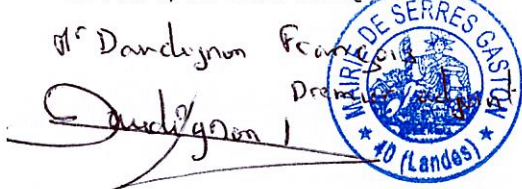 Mr Dandignon François
Premier adjoint
Dandignon
MAIRIE DE SERRES GASTON
★ 40 (Landes) ★